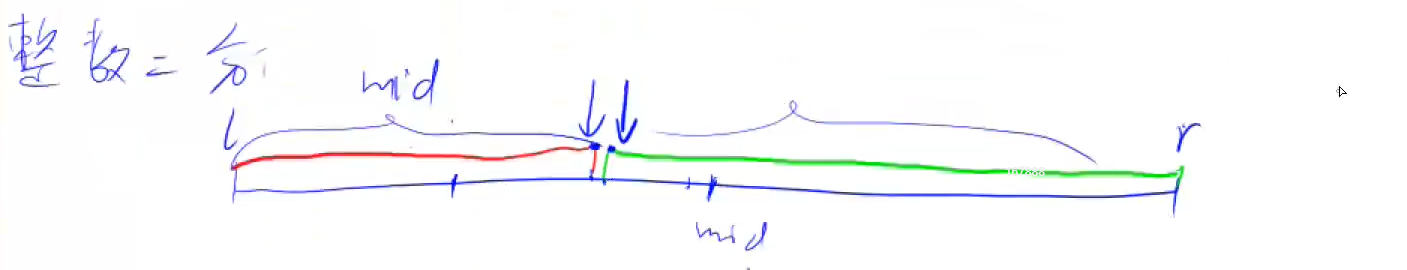 整数二分
mid
l
r
mid